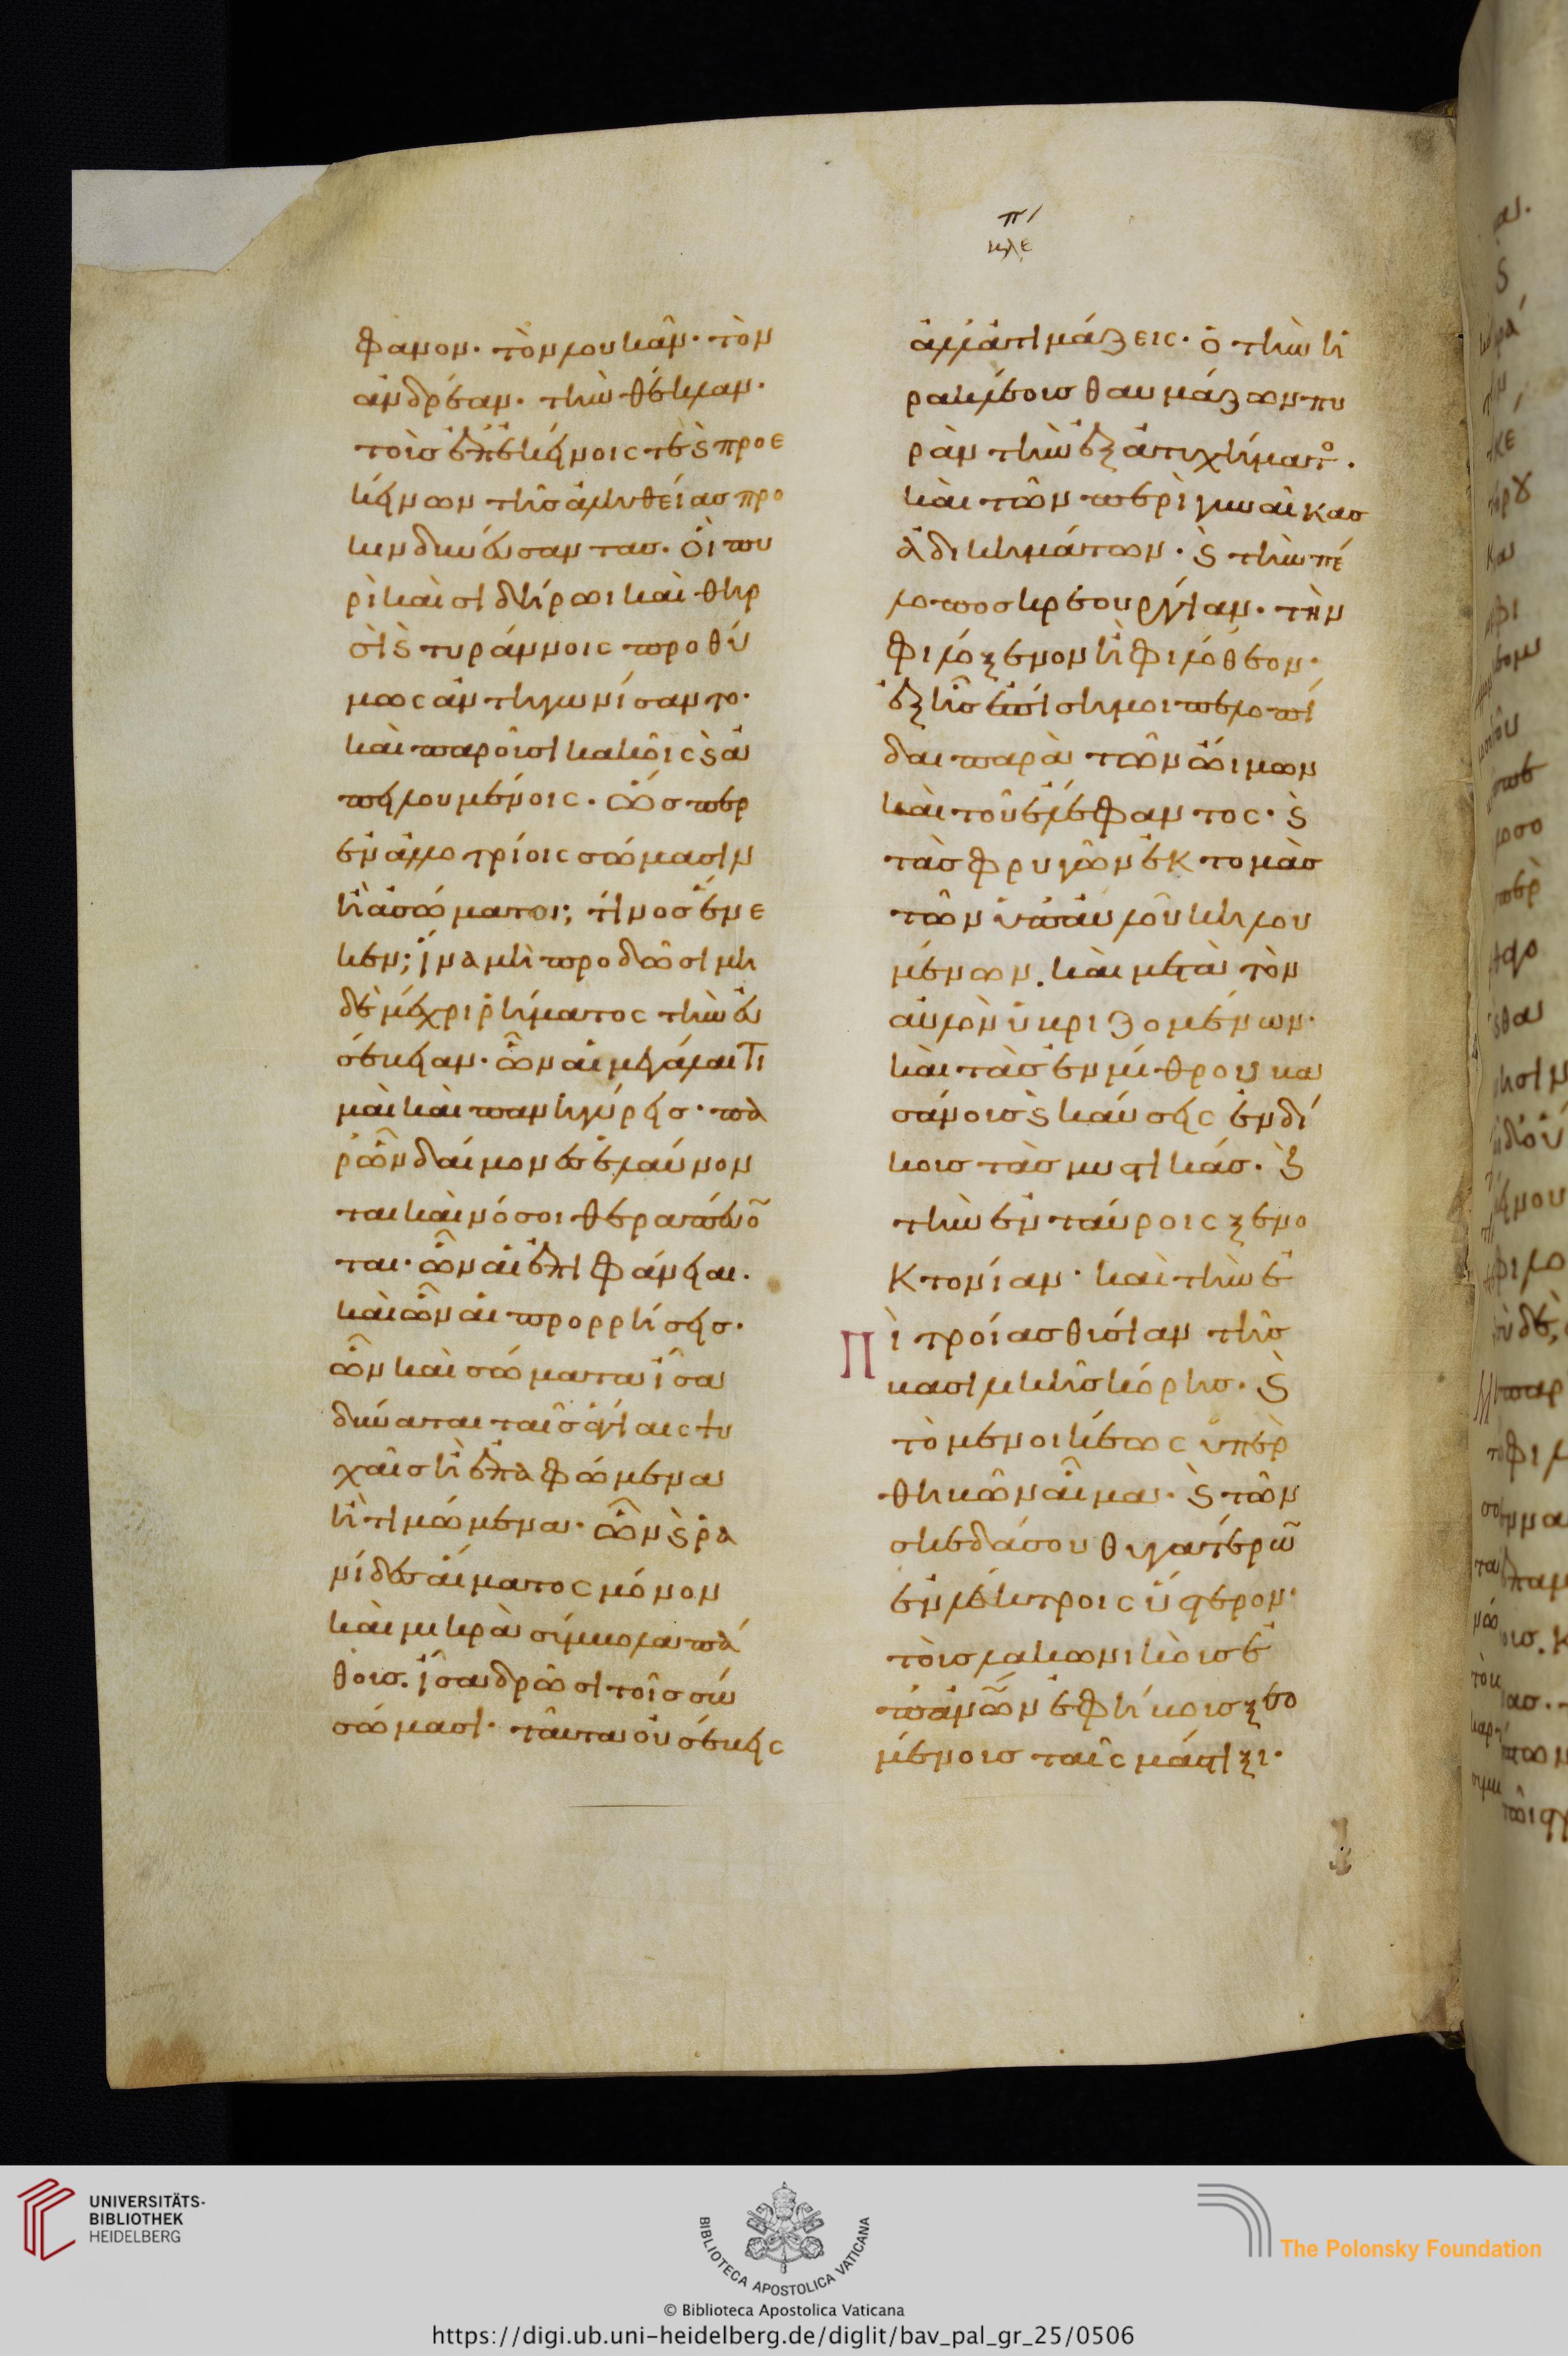 φανον· τὸν λουκᾶν· τὸν
ἀνδρέαν· τὴν θέκλαν·
τοὺς ἐπεκείνοις τὲ ϛ προε
κείνων τῆς ἀληθείας προ
κινδυνεύσαντας. οἳ πυ
ρὶ καὶ σιδήρωι καὶ θηρ
σὶ ϛ τυράννοις προθύ
μως ἀντηγωνίσαντο·
καὶ παροῦσι κακοῖς ϛ ἀ
πειλουμένοις. ὥσπερ
ἐν ἀλλοτρίοις σώμασιν
ἢ ἀσώματοι; τίνος ἕνε
κεν; ἵνα μὴ προδῶσι μη
δὲ μέχρι ῥήματος τὴν εὐ
σέβειαν· ὧν αἱ μεγάλαι τι
μαὶ καὶ πανηγύρεις· πα
ρὧν δαίμονες ἐλαύνον
ται καὶ νόσοι θεραπεύο̃
ται· ὧν αἱ ἐπιφάνειαι.
καὶ ὧν αἱ προρρήσεις·
ὧν καὶ σώματα ἴσα
δύναται ταῖς ἁγίαις ψυ
χαῖς ἢ ἐπαφώμενα
ἢ τιμώμενα· ὧν ϛ ῥα
νίδες αἵματος μόνον
καὶ μικρὰ σύμβολα πά
θους. ἴσα δρῶσι τοῖς σώ
σώμασι· ταῦτα οὐ σέβεις
ἀλλατιμάζεις· ὁ τὴν ἡ
ρακλέους θαυμάζων πυ
ρὰν τὴν ἐξ ἀτυχήματο̊.
καὶ τῶν περὶ γυναῖκας
ἀδικημάτων· ϛ τὴν πέ
λοπος κρεουργίαν· τὴν
φιλόξενον ἢ φιλόθεον·
ἐξ ἧς ἐπίσημοι πελοπί
δαι παρὰ τῶν ὤιμων
καὶ τοῦ ἐλέφαντος· ϛ
τὰς φρυγῶν ἐκτομὰς
τῶν ὑπαυλοῦ κηλου
μένων. καὶ μετὰ τὸν
αὐλὸν ὑβριζομένων·
καὶ τὰς ἐν μίθρου βα
σάνους ϛ καύσεις ἐνδί
κους τὰς μυστικάς· ϛ
τὴν ἐν ταύροις ξενο
κτονίαν· καὶ τὴν ἐ
Πὶ τροίας θυσίαν τῆς
βασιλικῆς κόρης· ϛ
τὸ μενοικέως ὑπὲρ
θηβῶν αἷμα· ϛ τῶν
σκεδάσου θυγατέρω̃
ἐν λεύκτροις ὕστερον·
τοὺς λακωνικοὺς ἐ
παινῶν ἐφήβους ξεο
μένους ταῖς μάστιξι·
UNIVERSITÄTS-
BIBLIOTHEK
HEIDELBERG
BIBLIOTECA APOSTOLICA VATICANA
The Polonsky Foundation
© Biblioteca Apostolica Vaticana
https://digi.ub.uni-heidelberg.de/diglit/bav_pal_gr_25/0506